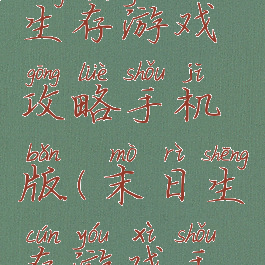 生存游戏
gōng lüè shǒu jī
攻略手机
bǎn mò rì shēng
版(末日生
cún yóu xì shǒu
存游戏手